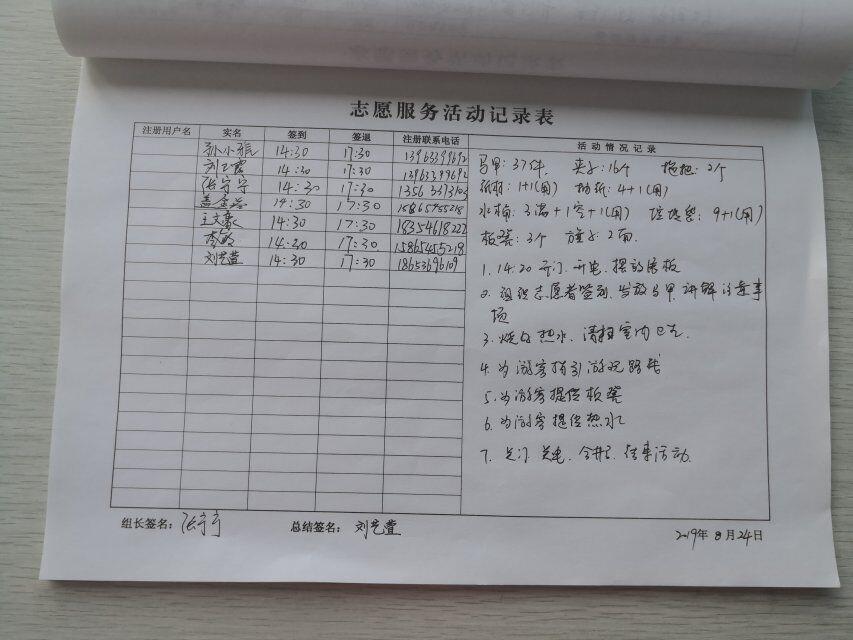 志愿服务活动记录表
注册用户名 实名 签到 签退 注册联系电话 活动情况记录
孙小振 14:30 17:30 13963399692
刘卫霞 14:30 17:30 13963399692
张宁宁 14:30 17:30
14:30 17:30 15865455218
王文豪 14:30 17:30 18354618222
李敏 14:30 17:30 15865455218
刘艺萱 14:30 17:30 18653696109
马甲:37件. 夹子:16个 拖把:2个
1+1(用) 4+1(用)
水桶:3满+1空+1(用) 垃圾袋:9+1(用)
板凳:3个 旗子:2面.
1. 14:20 开门、开电、摆放展板
2. 组织志愿者签到、发放马甲、讲解注意事
项
3. 烧好热水、清扫室内卫生.
4. 为游客指引游玩路线
5. 为游客提供板凳
6. 为游客提供热水
7. 关门、关电、合影、结束活动.
组长签名: 张宁宁 总结签名: 刘艺萱 2019年 8月24日